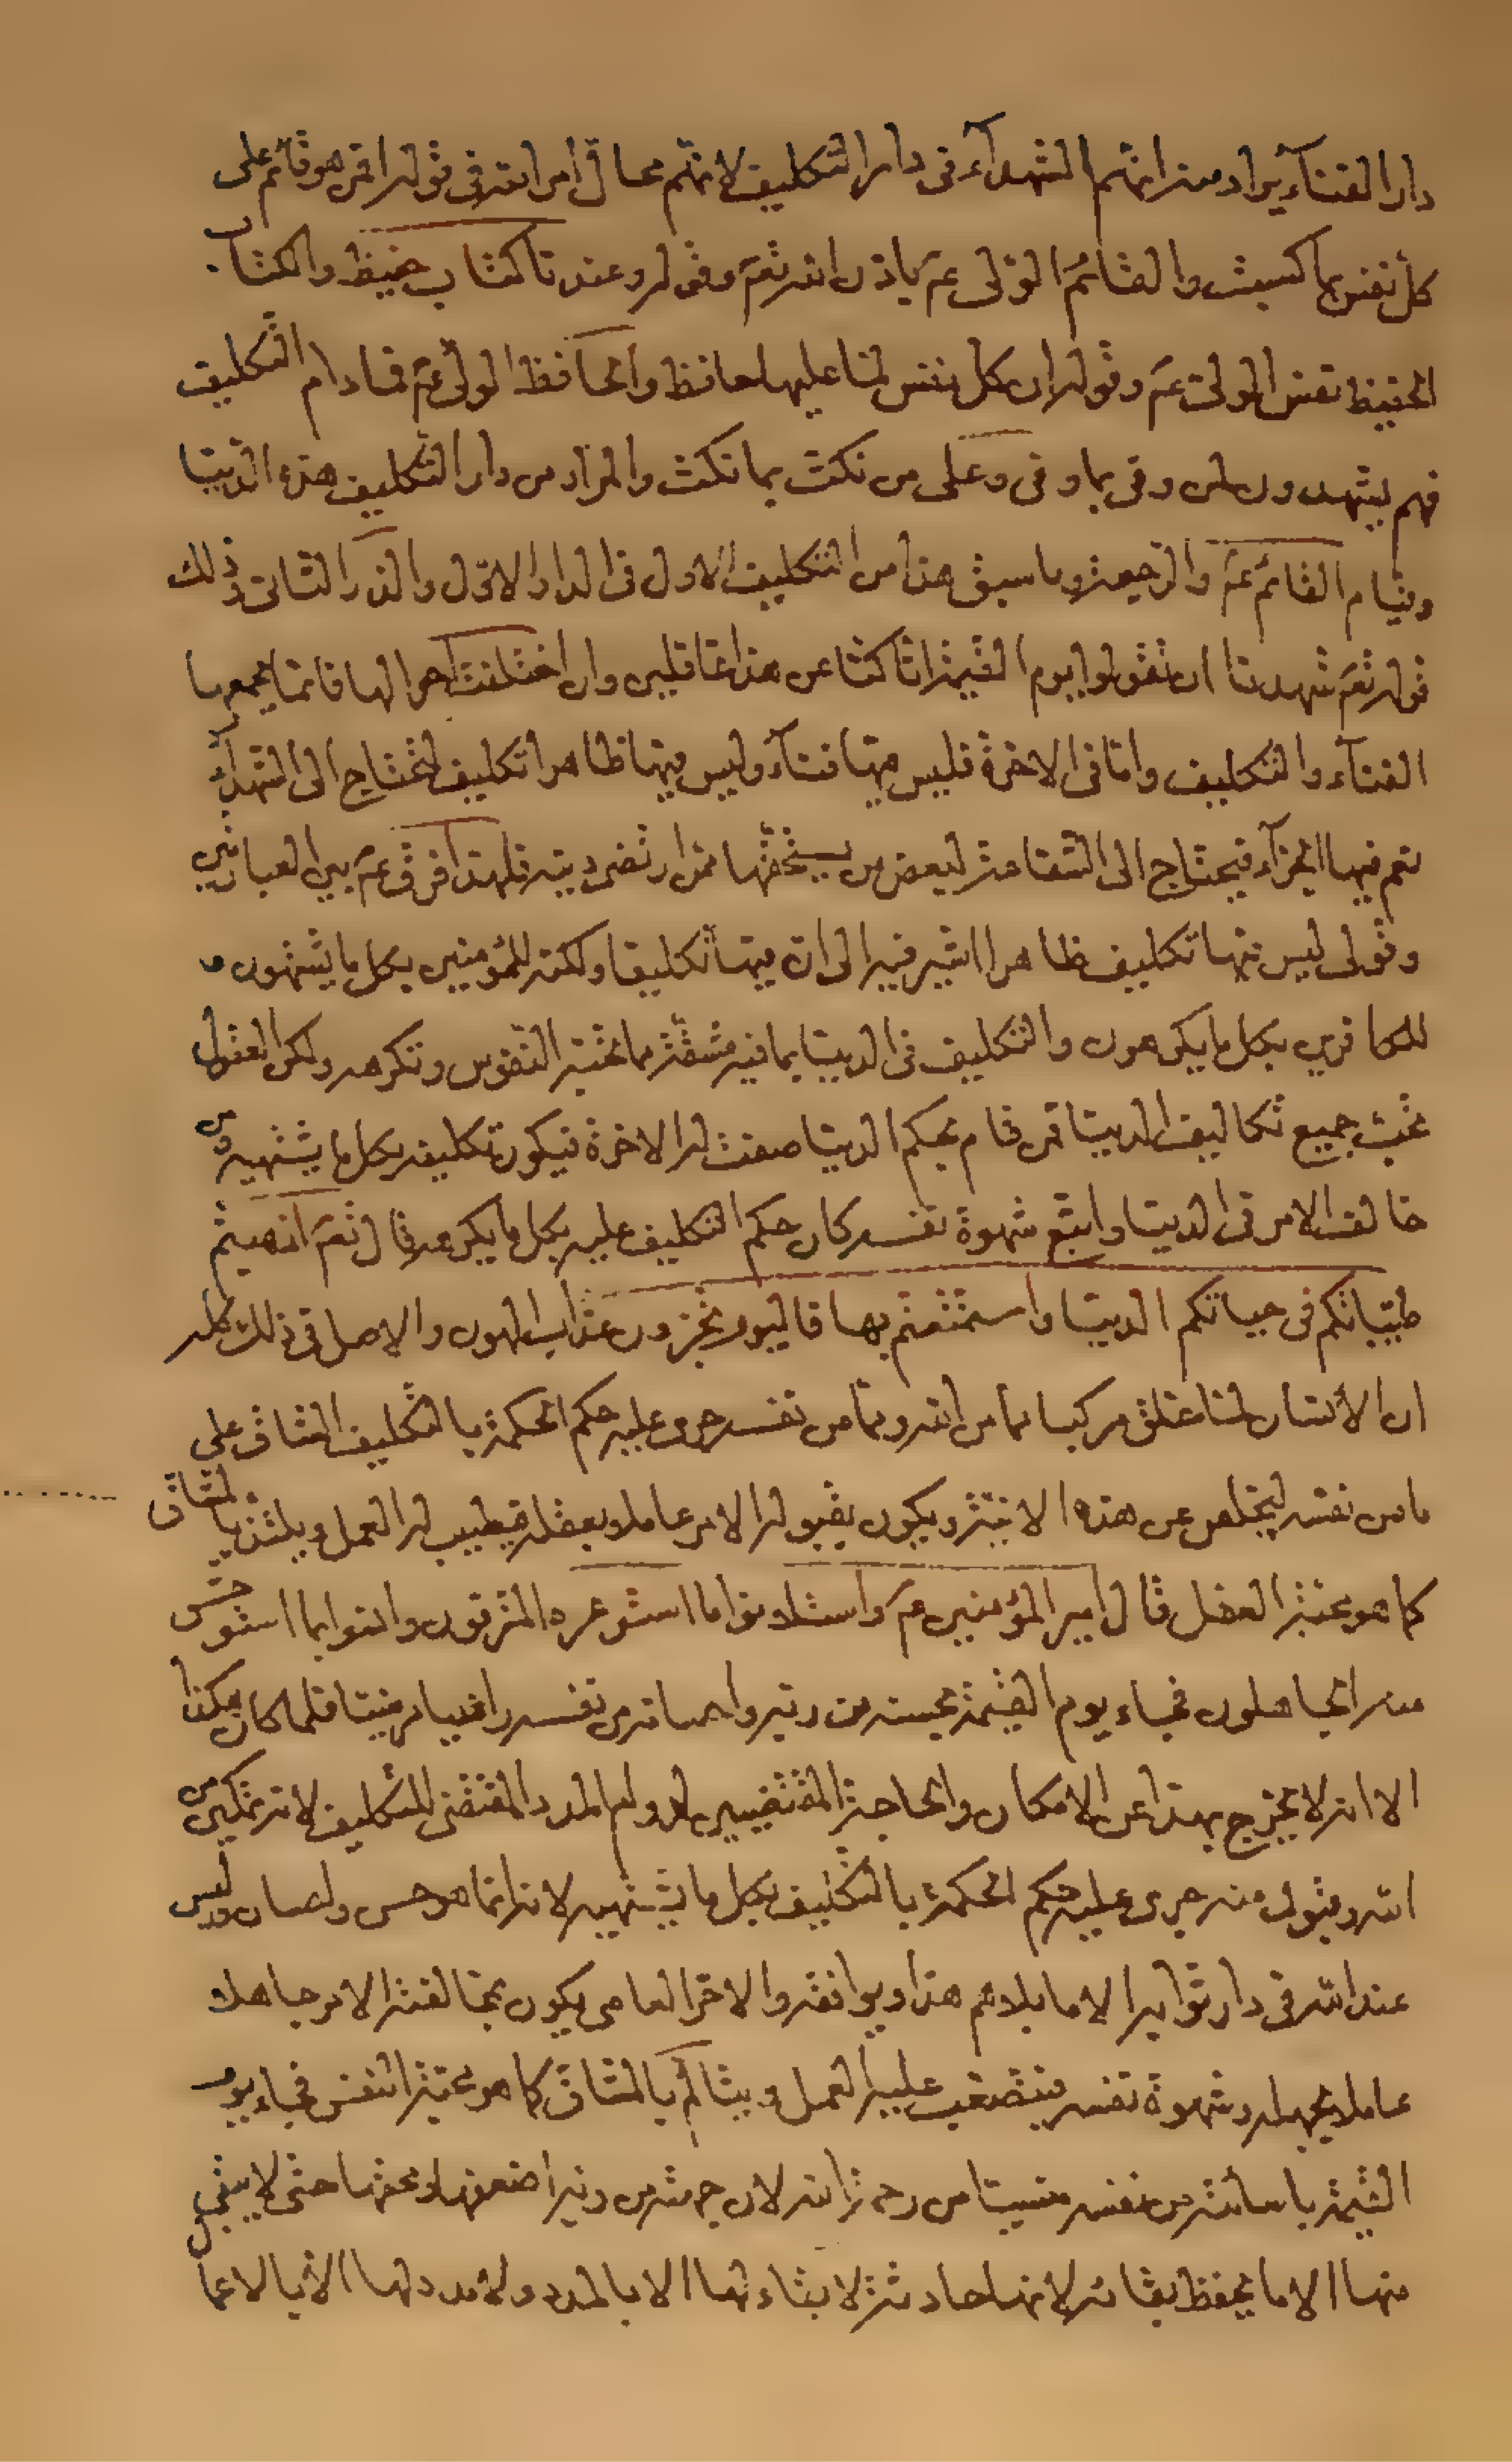 دار الفناء يراد منه انهم الشهداء في دار التكليف لانهم محال امر الله في قوله افمن هو قائم على
كل نفس بما كسبت والقائم الولى عم باذن الله تعم وقوله وعندنا كتاب حفيظ والكتاب
الحفيظ نفس الولى عم وقوله ان كل نفس لما عليها حافظ والحافظ الولى عم فما دام التكليف
فهم يشهدون لمن وفى بما وفى وعلى من نكث بما نكث والمراد من دار التكليف هذه الدنيا
وقيام القائم عم والرجعة وما سبق هذا من التكليف الاول في الدار الاول والذر الثانى وذلك
قوله تعم شهدنا ان تقولوا يوم القيمة انا كنا عن هذا غافلين وان اختلفت احوالها فانما يجمعها
الفناء والتكليف واما في الاخرة فليس فيها فناء وليس فيها ظاهرا تكليف لتحتاج الى الشهداء
نعم فيها الجزاء فيحتاج الى الشفاعة لبعض من يستحقها ممن ارتضى دينه فلهذا فرق عم بين العبارتين
وقولى ليس فيها تكليف ظاهرا اشير فيه الى ان فيها تكليفا ولكنه للمؤمنين بكل ما يشتهون و
للكافرين بكل ما يكرهون والتكليف في الدنيا بما فيه مشقة مما تحبه النفوس وتكرهه ولكن العقول
تحب جميع تكاليف الدنيا فمن قام بحكم الدنيا صفت له الاخرة فيكون تكليفه بكل ما يشتهيه ومن
خالف الامر في الدنيا واتبع شهوة نفسه كان حكم التكليف عليه بكل ما يكرهه قال تعم اذهبتم
طيباتكم في حياتكم الدنيا واستمتعتم بها فاليوم تجزون عذاب الهون والاصل في ذلك كله
ان الانسان لما خلق مركبا مما من الله ومما من نفسه جرى عليه حكم الحكمة بالتكليف الشاق على
ما من نفسه ليتخلص عن هذه الانية ويكون بقبوله الامر عاملا بعقله فيطيب له العمل ويلتذ بالمشاق
كما هو محبة العقل قال امير المؤمنين عم واستلانوا ما استوعره المترفون وانسوا بما استوحش
منه الجاهلون فجاء يوم القيمة بحسنه من ربه واحسانه من نفسه راضيا مرضيا فلما كان ممكنا
الا انه لا يخرج بهذا عن الامكان والحاجة المقتضيين لدوام المدد المقتضى للتكليف لانه تمكين من
الله وقبول منه جرى عليه حكم الحكمة بالتكليف بكل ما يشتهيه لانه انما هو حسن واحسان وليس
عند الله في دار ثوابه الا ما يلائم هذا ويوافقه والاخر العاصى يكون بمخالفته الامر جاهلا
عاملا بجهله وشهوة نفسه فيتصعب عليه العمل ويتألم بالمشاق كما هو محبة النفس فجاء يوم
القيمة باسائته من نفسه منسيا من رحمة الله لان جهته من ربه اضعفها ومحقها حتى لا يبقى
منها الا ما يحفظ بقائه لانها حادثة لا بقاء لها الا بالمدد ولا مدد لها الا بالاعمال